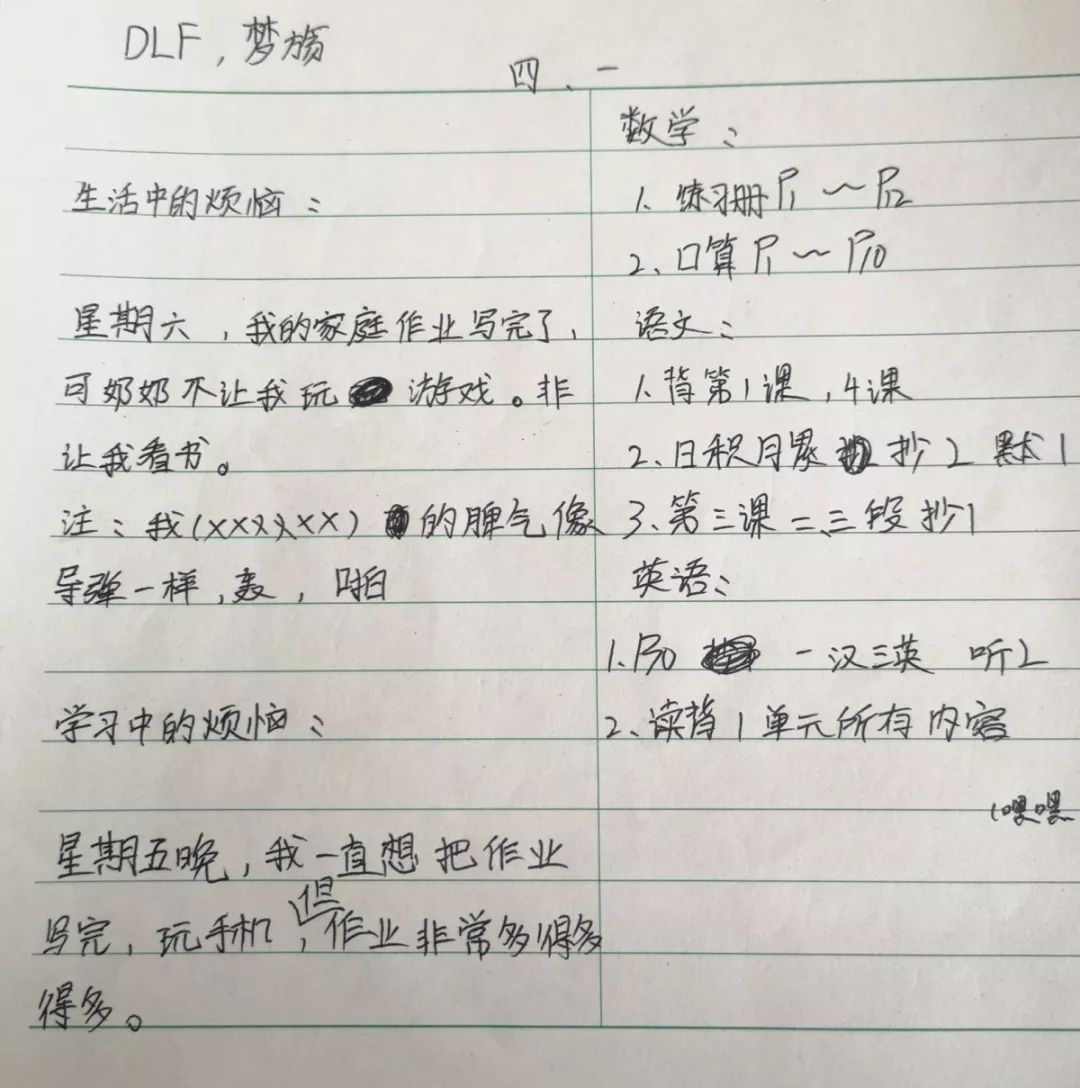 DLF，梦旸
四．一
生活中的烦恼：
星期六，我的家庭作业写完了，
可奶奶不让我玩游戏。非
让我看书。
注：我(××××××)的脾气像
导弹一样，轰，啪
学习中的烦恼：
星期五晚，我一直想把作业
写完，玩手机，但作业非常多得多
得多。
数学：
1、练习册P1～P12
2、口算P1～P10
语文：
1、背第1课，4课
2、日积月累抄2 默1
3、第三课二、三段抄1
英语：
1、P70 一汉三英 听2
2、读背1单元所有内容
嘿嘿